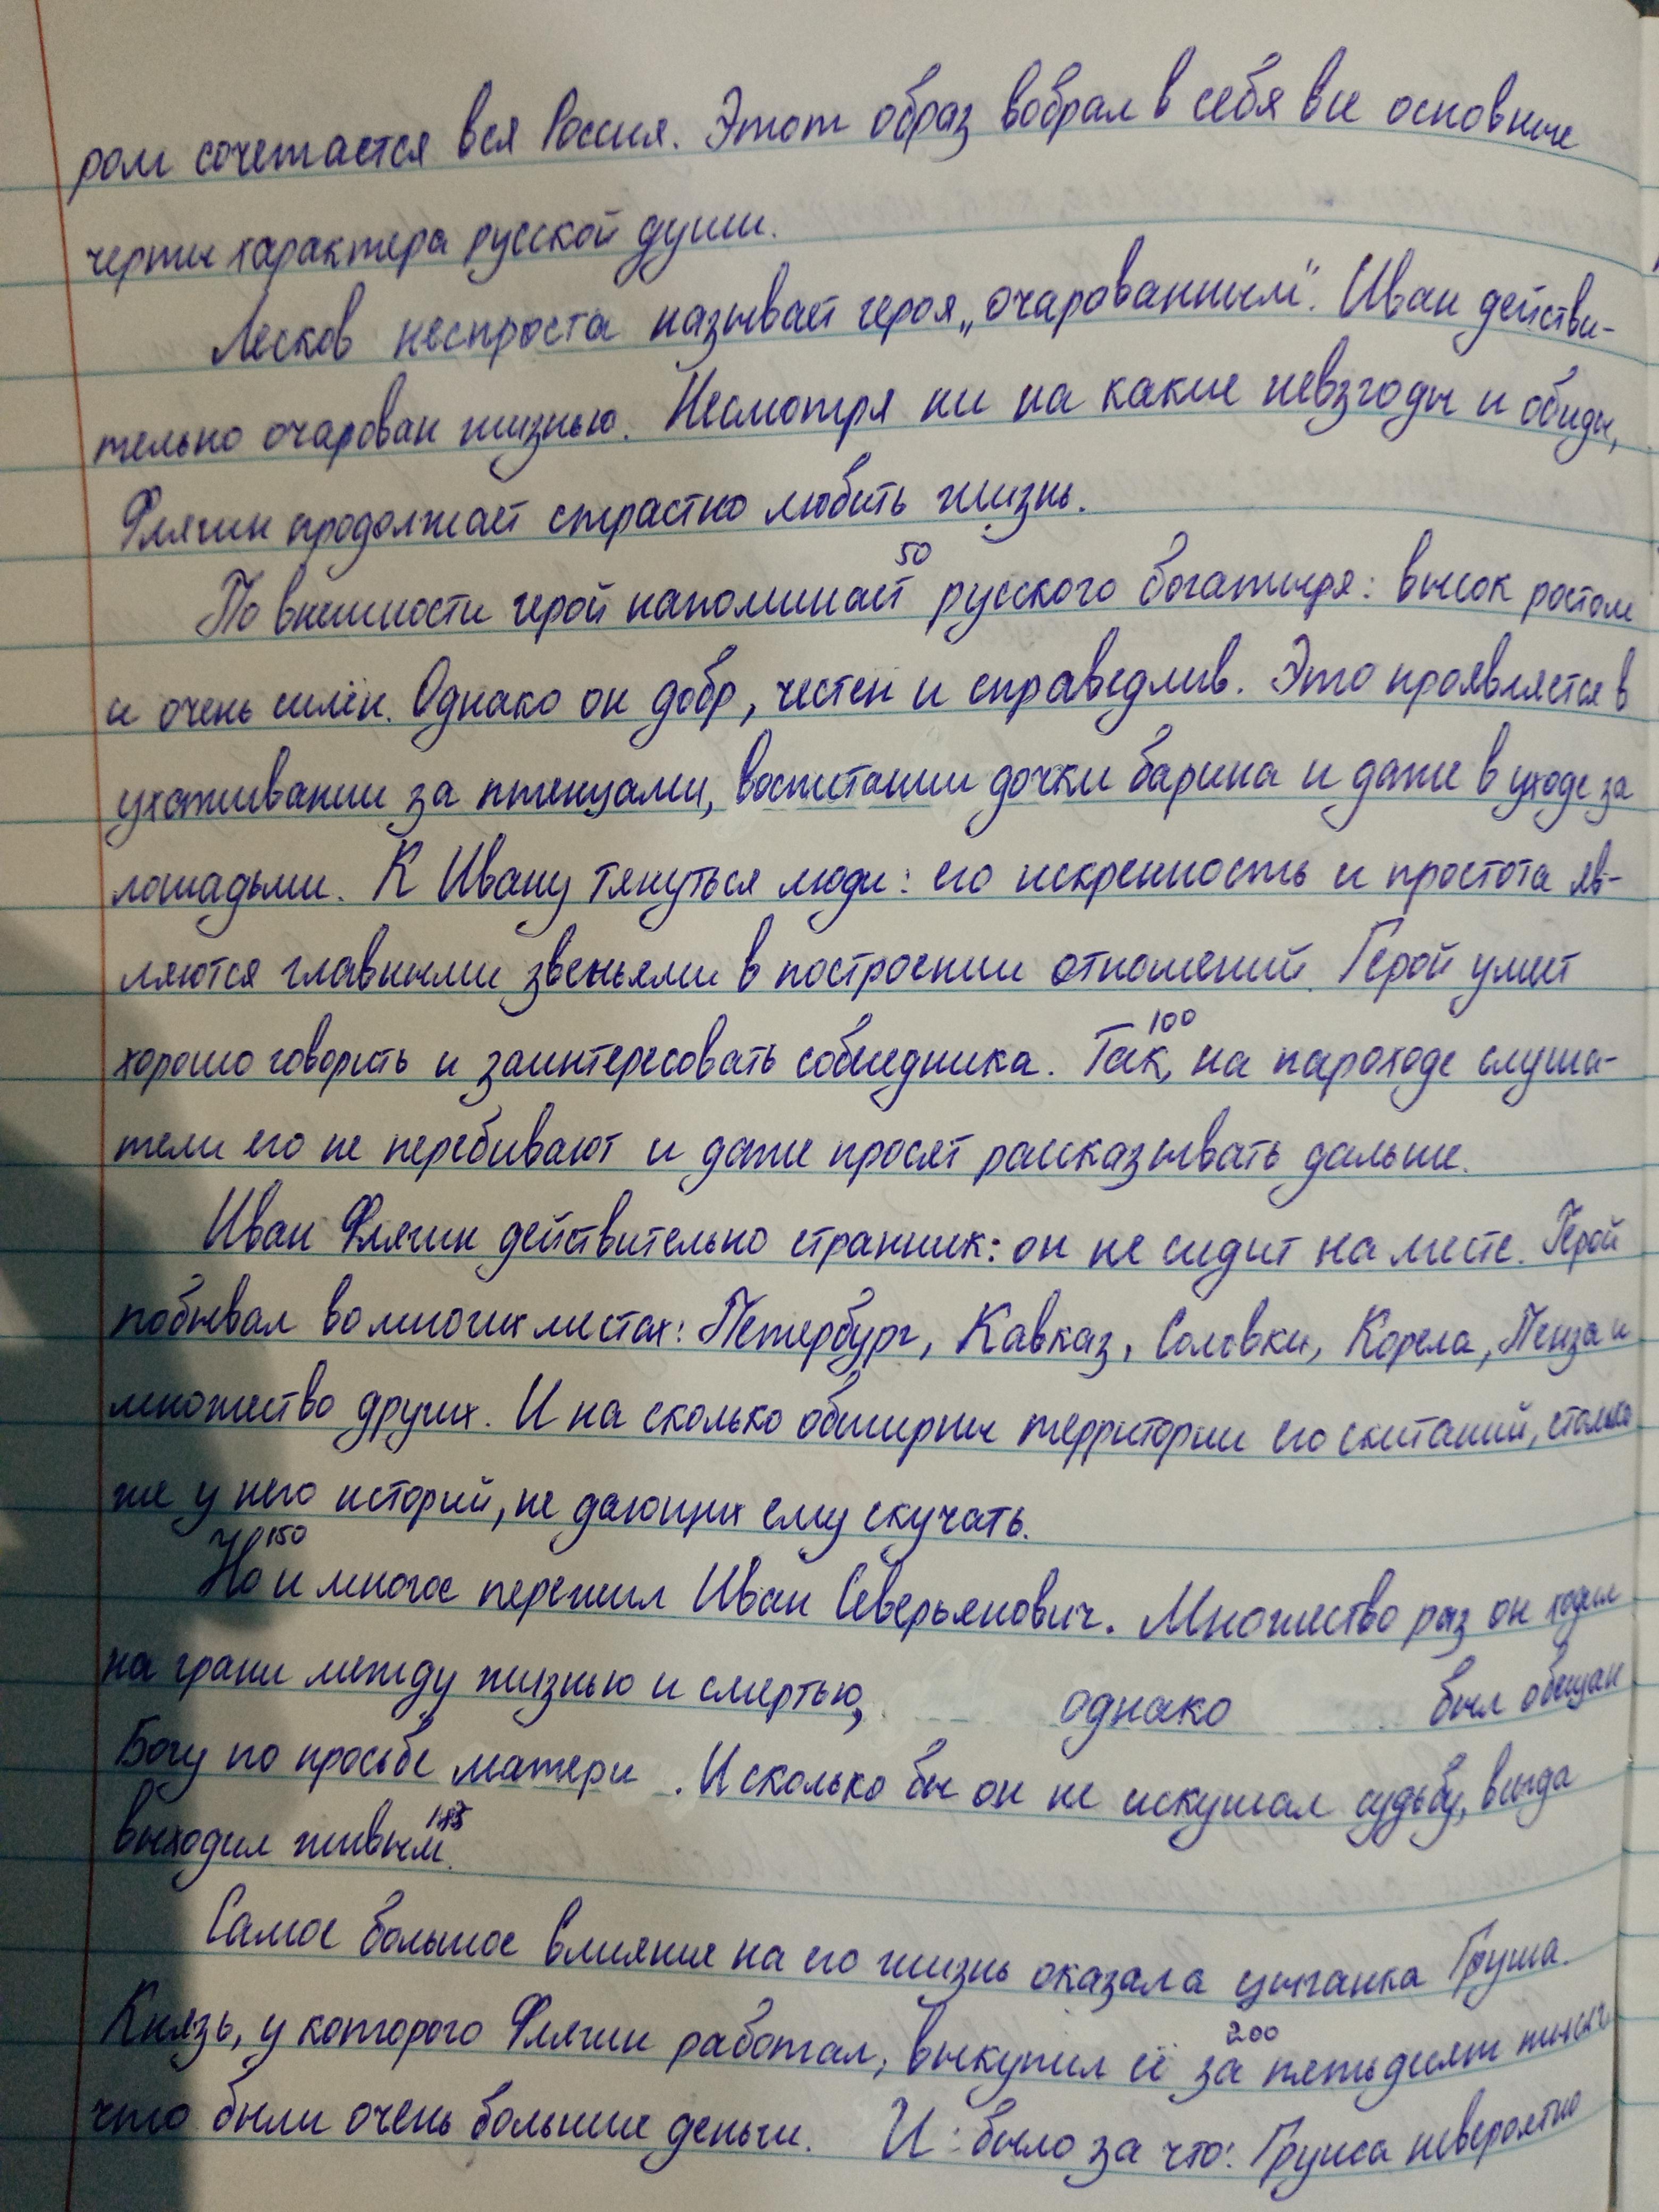 ром сочетается вся Россия. Этот образ вобрал в себя все основные
черты характера русской души.
Лесков неспроста называет героя „очарованным". Иван действи-
тельно очарован жизнью. Несмотря ни на какие невзгоды и обиды,
Флягин продолжает страстно любить жизнь.
50
По внешности герой напоминает русского богатыря: высок ростом
и очень силён. Однако он добр, честен и справедлив. Это проявляется в
ухаживании за птенцами, воспитании дочки барина и даже в уходе за
лошадьми. К Ивану тянуться люди: его искренность и простота яв-
ляются главными звеньями в построении отношений. Герой умеет
100
хорошо говорить и заинтересовать собеседника. Так, на пароходе слуша-
тели его не перебивают и даже просят рассказывать дальше.
Иван Флягин действительно странник: он не сидит на месте. Герой
побывал во многих местах: Петербург, Кавказ, Соловки, Корела, Пенза и
множество других. И на сколько обширны территории его скитаний, столько
же у него историй, не дающих ему скучать.
150
Но и многое пережил Иван Северьянович. Множество раз он ходил
на грани между жизнью и смертью, однако был обещан
Богу по просьбе матери. И сколько бы он не искушал судьбу, всегда
выходил живым.
Самое большое влияние на его жизнь оказала цыганка Груша.
200
Князь, у которого Флягин работал, выкупил её за пятьдесят тысяч
что были очень большие деньги. И было за что: Груша невероятно